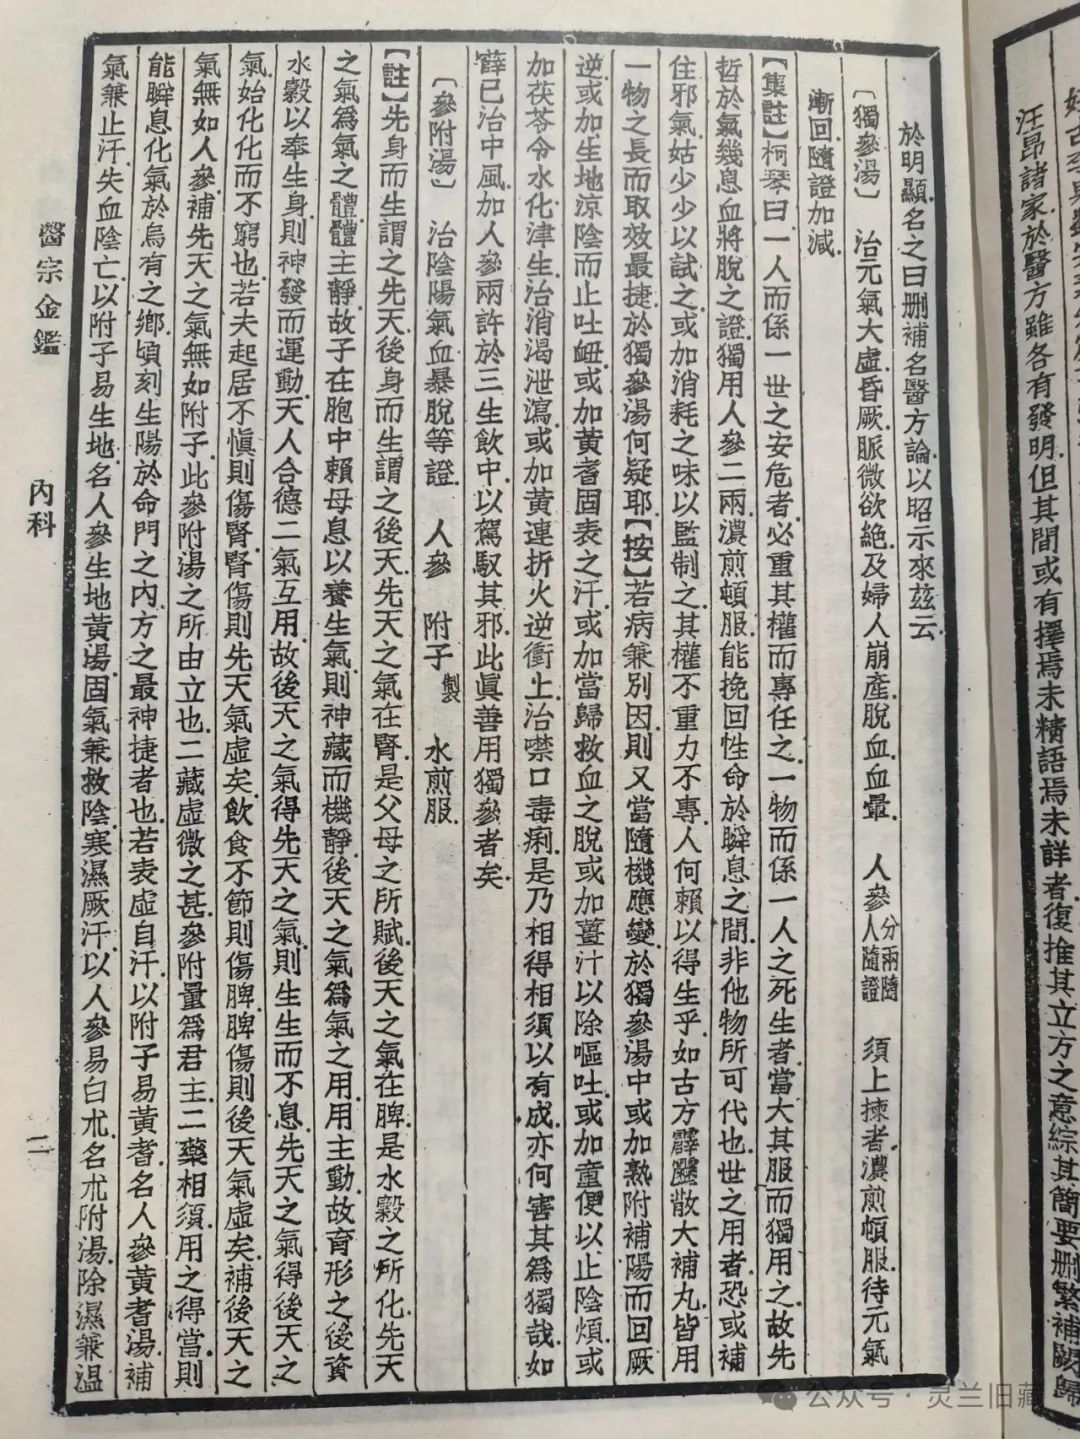 汪昂諸家於醫方雖各有發明但其間或有擇焉未精語焉未詳者復推其立方之意綜其簡要刪繁補闕歸
於明顯名之曰刪補名醫方論以昭示來茲云
〔獨參湯〕 治元氣大虛昏厥脈微欲絶及婦人崩產脫血血暈 人參分兩隨人隨證 須上揀者濃煎頓服待元氣
漸回隨證加減
【集註】柯琴曰一人而係一世之安危者必重其權而專任之一物而係一人之死生者當大其服而獨用之故先
哲於氣幾息血將脫之證獨用人參二兩濃煎頓服能挽回性命於瞬息之間非他物所可代也世之用者恐或補
住邪氣姑少少以試之或加消耗之味以監制之其權不重力不專人何賴以得生乎如古方霹靂散大補丸皆用
一物之長而取效最捷於獨參湯何疑耶【按】若病兼別因則又當隨機應變於獨參湯中或加熟附補陽而回厥
逆或加生地涼陰而止吐衄或加黃耆固表之汗或加當歸救血之脫或加薑汁以除嘔吐或加童便以止陰煩或
加茯苓令水化津生治消渴泄瀉或加黃連折火逆衝上治噤口毒痢是乃相得相須以有成亦何害其爲獨哉如
薛已治中風加人參兩許於三生飲中以駕馭其邪此眞善用獨參者矣
〔參附湯〕 治陰陽氣血暴脫等證 人參 附子製 水煎服
【註】先身而生謂之先天後身而生謂之後天先天之氣在腎是父母之所賦後天之氣在脾是水穀之所化先天
之氣爲氣之體體主靜故子在胞中賴母息以養生氣則神藏而機靜後天之氣爲氣之用用主動故育形之後資
水穀以奉生身則神發而運動天人合德二氣互用故後天之氣得先天之氣則生生而不息先天之氣得後天之
氣始化化而不窮也若夫起居不愼則傷腎腎傷則先天氣虛矣飲食不節則傷脾脾傷則後天氣虛矣補後天之
氣無如人參補先天之氣無如附子此參附湯之所由立也二藏虛微之甚參附量爲君主二藥相須用之得當則
能瞬息化氣於烏有之鄉頃刻生陽於命門之內方之最神捷者也若表虛自汗以附子易黃耆名人參黃耆湯補
氣兼止汗失血陰亡以附子易生地名人參生地黃湯固氣兼救陰寒濕厥汗以人參易白朮名朮附湯除濕兼溫
醫宗金鑑 內科 二
公众号·灵兰旧藏